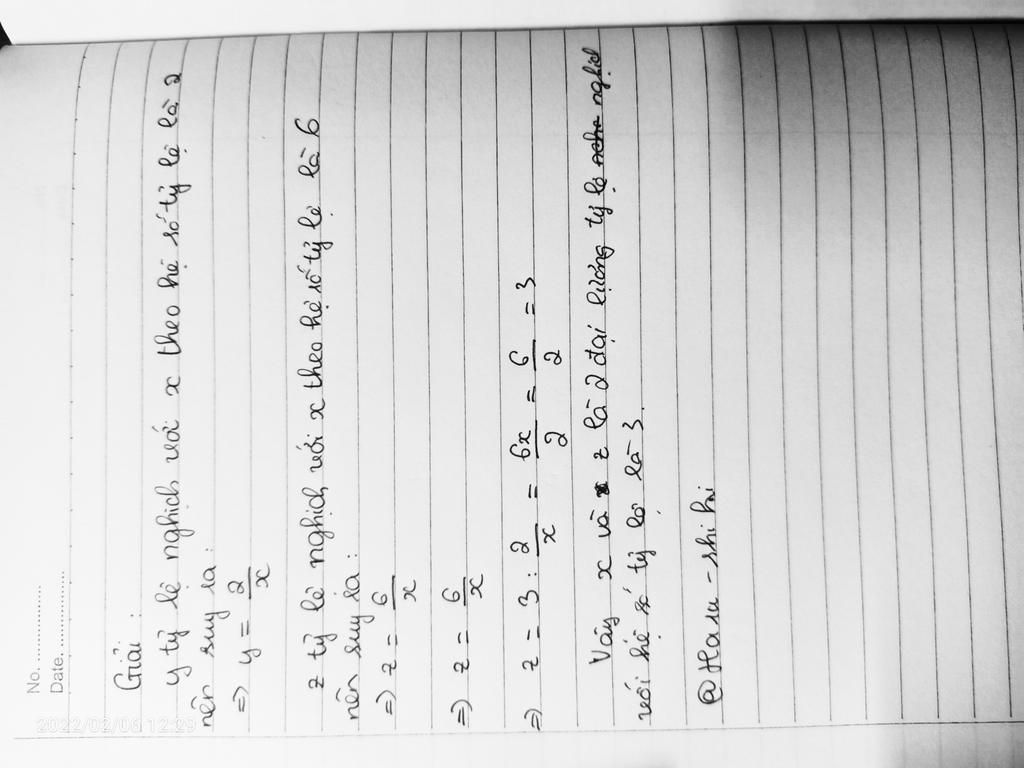 No. ....................
Date. ....................
Giải :
y tỷ lệ nghịch với x theo hệ số tỷ lệ là 2
nên suy ra :
=> y = 2/x
z tỷ lệ nghịch với x theo hệ số tỷ lệ là 6
nên suy ra :
=> z = 6/x
=> z = 6/x
=> z = 3 : 2/x = 6x/2 = 6/2 = 3
Vậy x và z là 2 đại lượng tỷ lệ nghịch
với hệ số tỷ lệ là 3.
@Haru - shi hi
2022/02/06 12:29